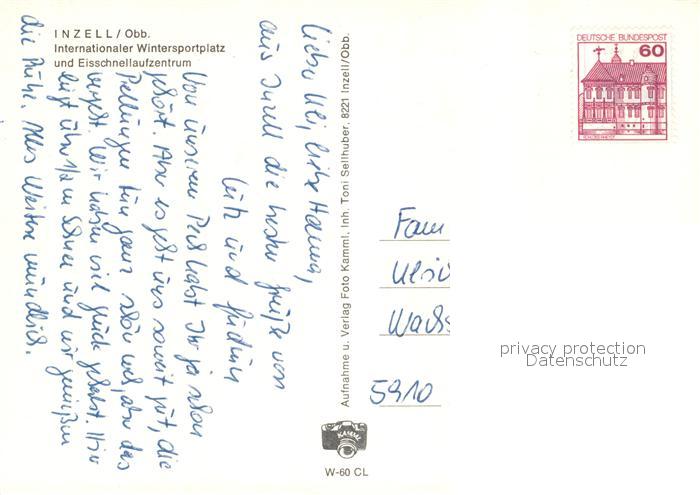 INZELL / Obb.
Internationaler Wintersportplatz
und Eisschnellaufzentrum
Liebe Uli, liebe Hanna,
aus Inzell die besten Grüße von
Lutz und
Von unserem Pech habt Ihr ja schon
gehört. Aber es geht uns soweit gut, die
Prellungen tun ganz schön weh, aber das
vergeht. Wir haben viel Glück gehabt. Hier
liegt über 1/2 m Schnee und wir genießen
die Ruhe. Alles Weitere mündlich.
Aufnahme u. Verlag Foto Kammi, Inh. Toni Sellhuber, 8221 Inzell/Obb.
KAMMI
W-60 CL
DEUTSCHE BUNDESPOST
60
SCHLOSS RHEYDT
Fam
Ulri
Wachs
5910
privacy protection
Datenschutz